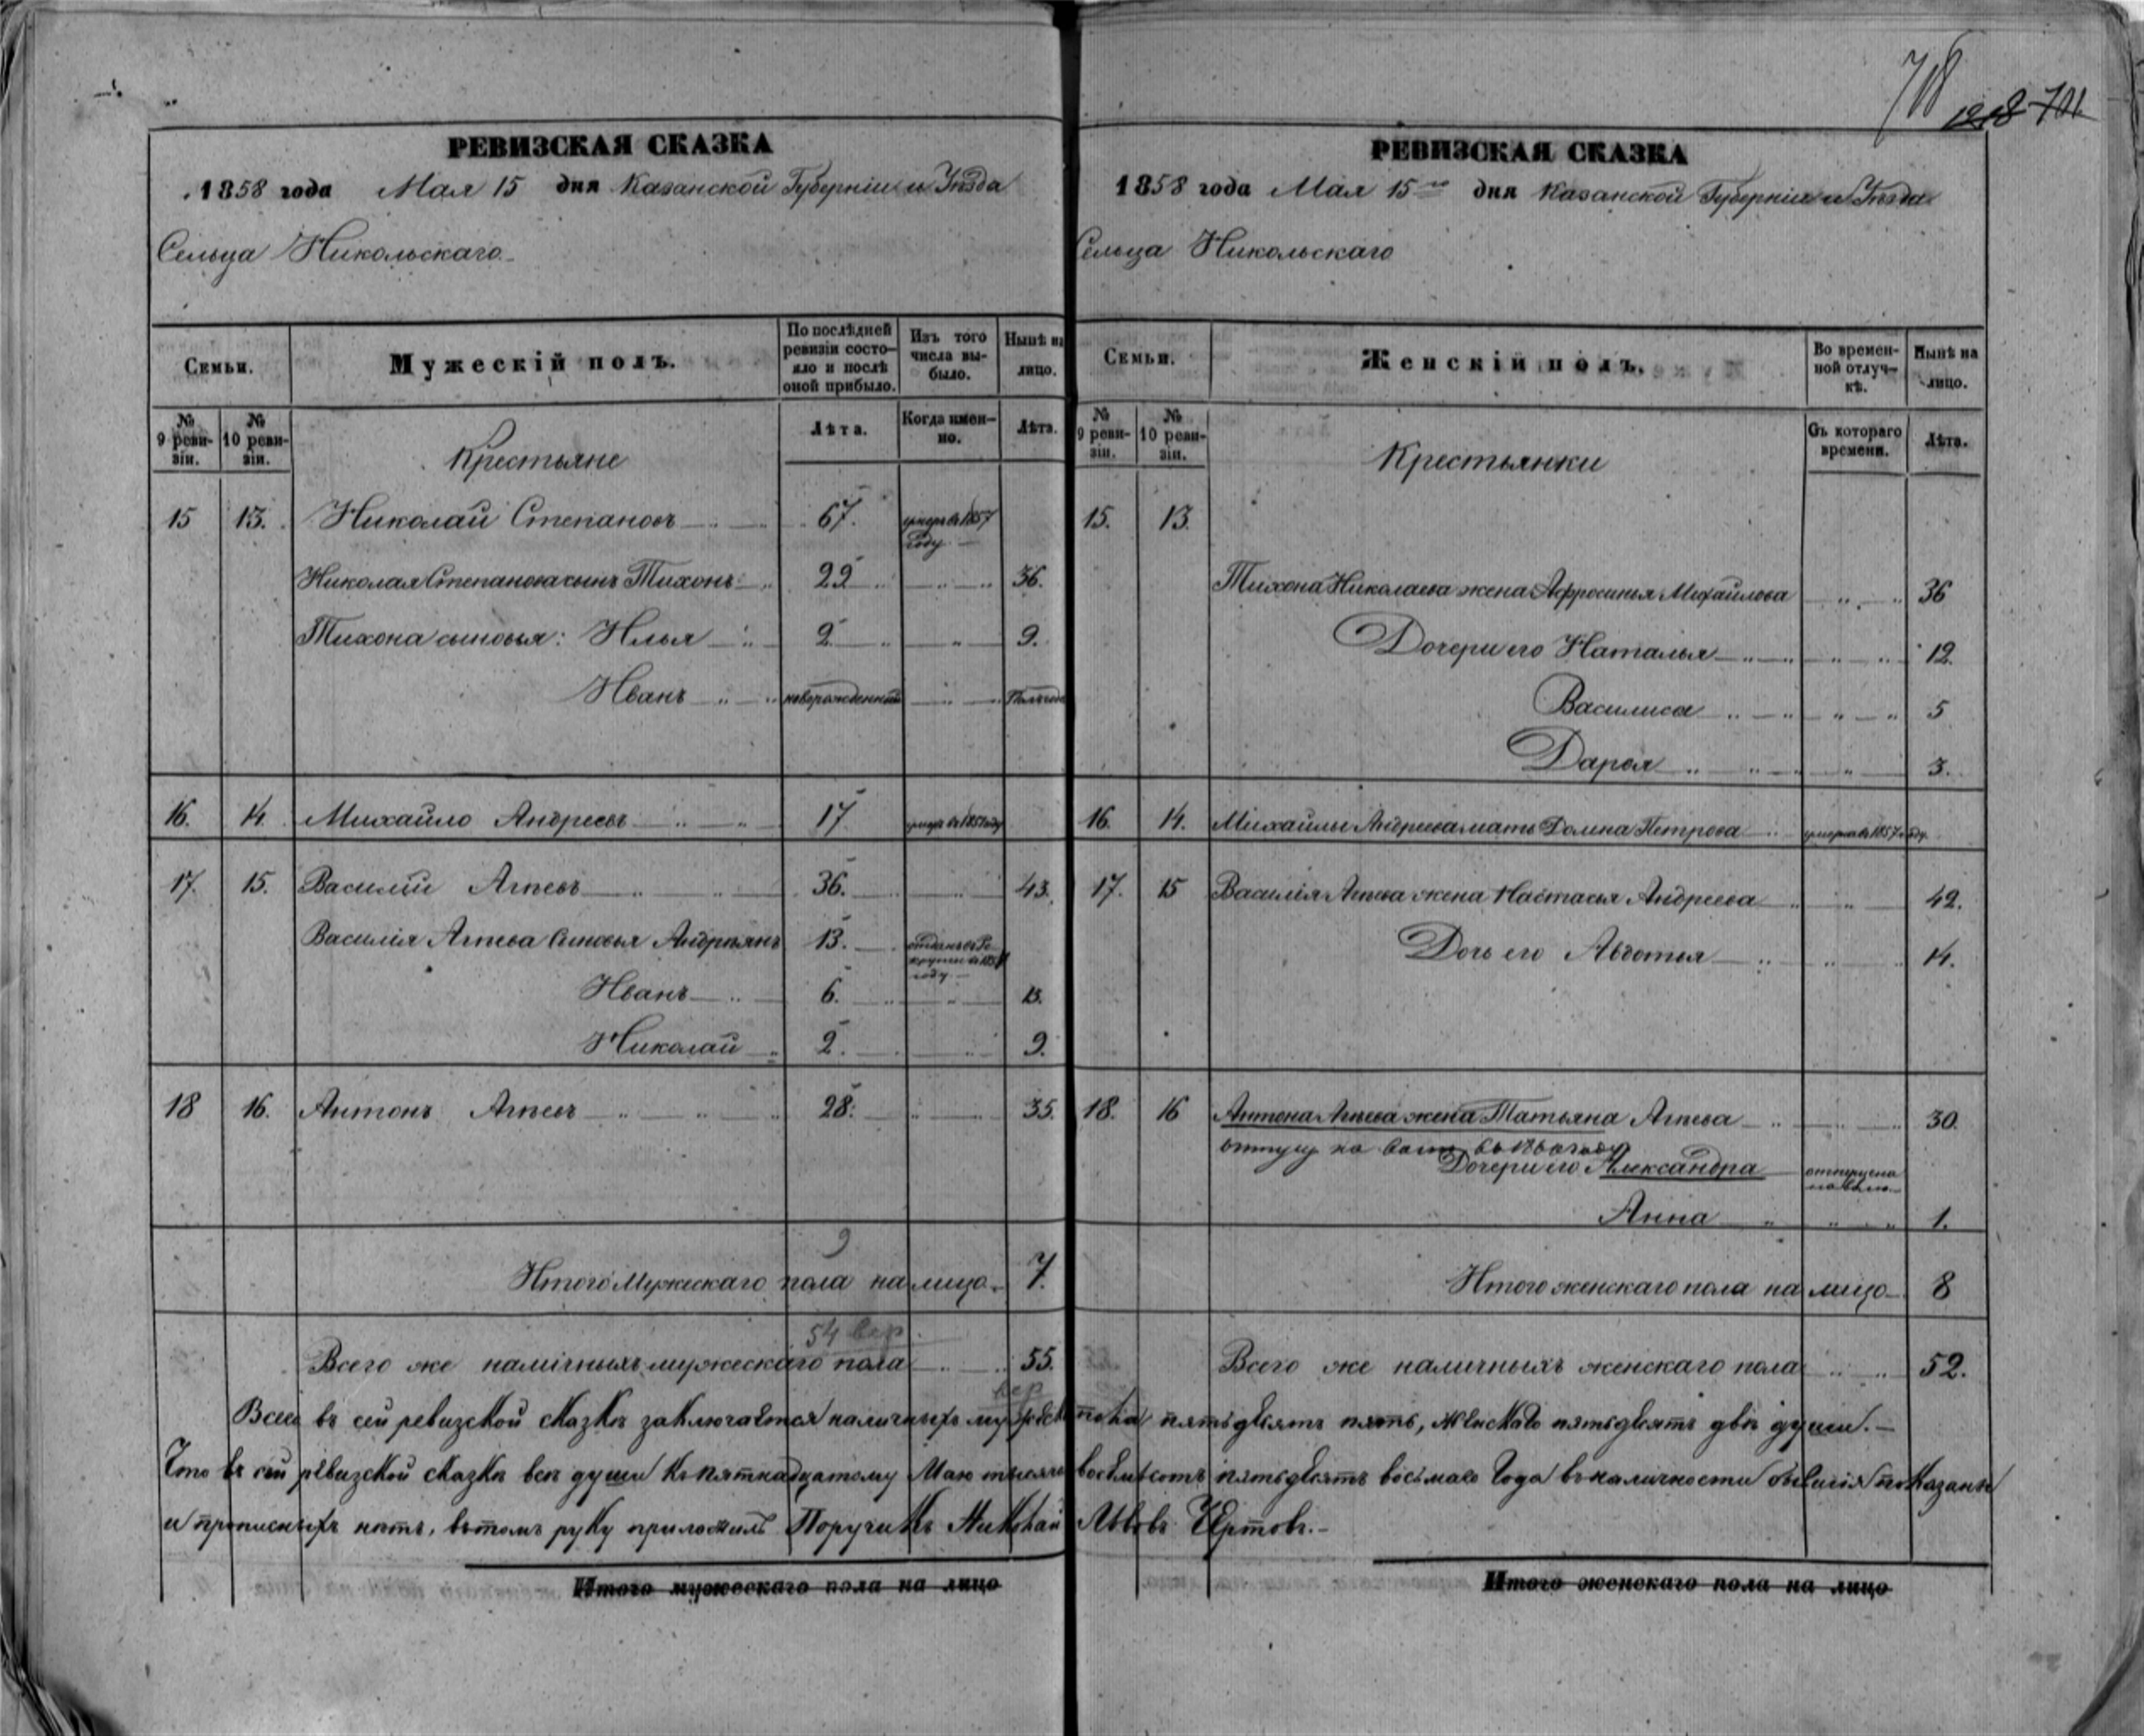 718
1218 701
РЕВИЗСКАЯ СКАЗКА
1858 года Мая 15 дня Казанской Губерніи и Уѣзда
Сельца Никольскаго
Семьи.
Мужескій полъ.
По послѣдней ревизіи состояло и послѣ оной прибыло.
Изъ того числа выбыло.
Нынѣ на лицо.
№ 9 ревизіи.
№ 10 ревизіи.
Крестьяне
Лѣта.
Когда именно.
Лѣта.
15 13. Николай Степановъ 67. умеръ въ 1857 году
Николая Степанова сынъ Тихонъ 29 36.
Тихона сыновья: Илья 2 9.
Иванъ новорожденный Полгода
16. 14. Михайло Андреевъ 17 умеръ въ 1851 году
17. 15. Василій Агѣевъ 36. 43.
Василія Агѣева сыновья Андреянъ 13. отданъ въ Рекруты въ году
Иванъ 6. 13.
Николай 2. 9.
18 16. Антонъ Агѣевъ 28. 35.
9
Итого Мужескаго пола на лицо 7.
54 вер
Всего же наличныхъ мужескаго пола 55.
вер
РЕВИЗСКАЯ СКАЗКА
1858 года Мая 15го дня Казанской Губерніи и Уѣзда
Сельца Никольскаго
Семьи.
Женскій полъ.
Во временной отлучкѣ.
Нынѣ на лицо.
№ 9 ревизіи.
№ 10 ревизіи.
Крестьянки
Съ котораго времени.
Лѣта.
15. 13.
Тихона Николаева жена Афросинья Михайлова 36
Дочери его Наталья 12.
Василиса 5
Дарья 3.
16. 14. Михайлы Андреева мать Домна Петрова умерла въ 1857 году.
17. 15 Василія Агѣева жена Настасья Андреева 42.
Дочь его Авдотья 14.
18. 16 Антона Агѣева жена Татьяна Агѣева 30.
Дочери его Александра отпущена на волю
Анна 1.
Итого женскаго пола на лицо 8
Всего же наличныхъ женскаго пола 52.
Всего въ сей ревизской сказкѣ заключается наличныхъ мужеска пола пятьдесятъ пять, женскаго пятьдесятъ двѣ души.
Что въ сей ревизской сказкѣ всѣ души къ пятнадцатому Маю тысяча восемьсотъ пятьдесятъ восьмаго года въ наличности бывшія показаны
и прописныхъ нѣтъ, въ томъ руку приложилъ Поручикъ Николай Львовъ Чертовъ.
Итого мужескаго пола на лицо
Итого женскаго пола на лицо